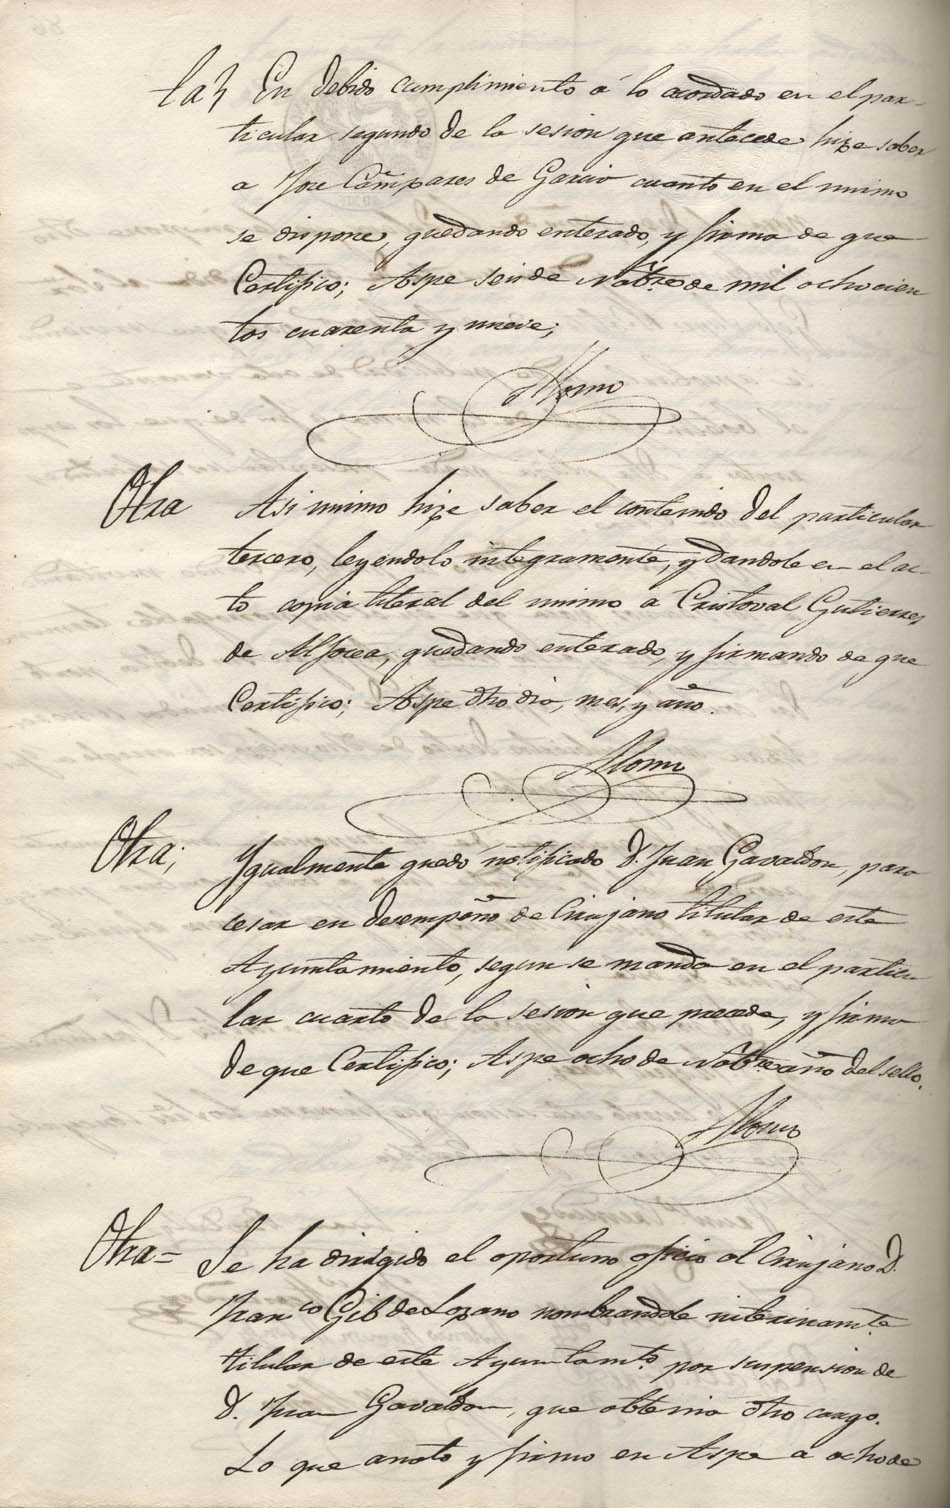 En debido cumplimiento á lo acordado en el par-
ticular segundo de la sesion que antecede hize saber
a Jose Cañizares de Garcia cuanto en el mismo
se dispone, quedando enterado, y firma de que
Certifico; Aspe seis de Nobre. de mil ochocien
tos cuarenta y nueve;
Otra
Asi mismo hize saber el contenido del particular
tercero, leyendolo integramente, y dandole en el ac-
to copia literal del mismo a Cristoval Gutierres
de Alfocea, quedando enterado, y firmando de que
Certifico; Aspe dho dia, mes, y año.
Otra;
Ygualmente quedó notificado D. Juan Gavaldon, para
cesar en desempeño de Cirujano titular de este
Ayuntamiento, segun se manda en el particu
lar cuarto de la sesion que precede, y firma
de que Certifico; Aspe ocho de Nobre. año del sello.
Otra=
Se ha dirigido el oportuno oficio al Cirujano D.
Franco Gil de Lozano nombrandole interinamte.
titular de este Ayuntamto. por suspension de
D. Juan Gavaldon, que obtenia dho cargo.
Lo que anoto y firmo en Aspe a ocho de